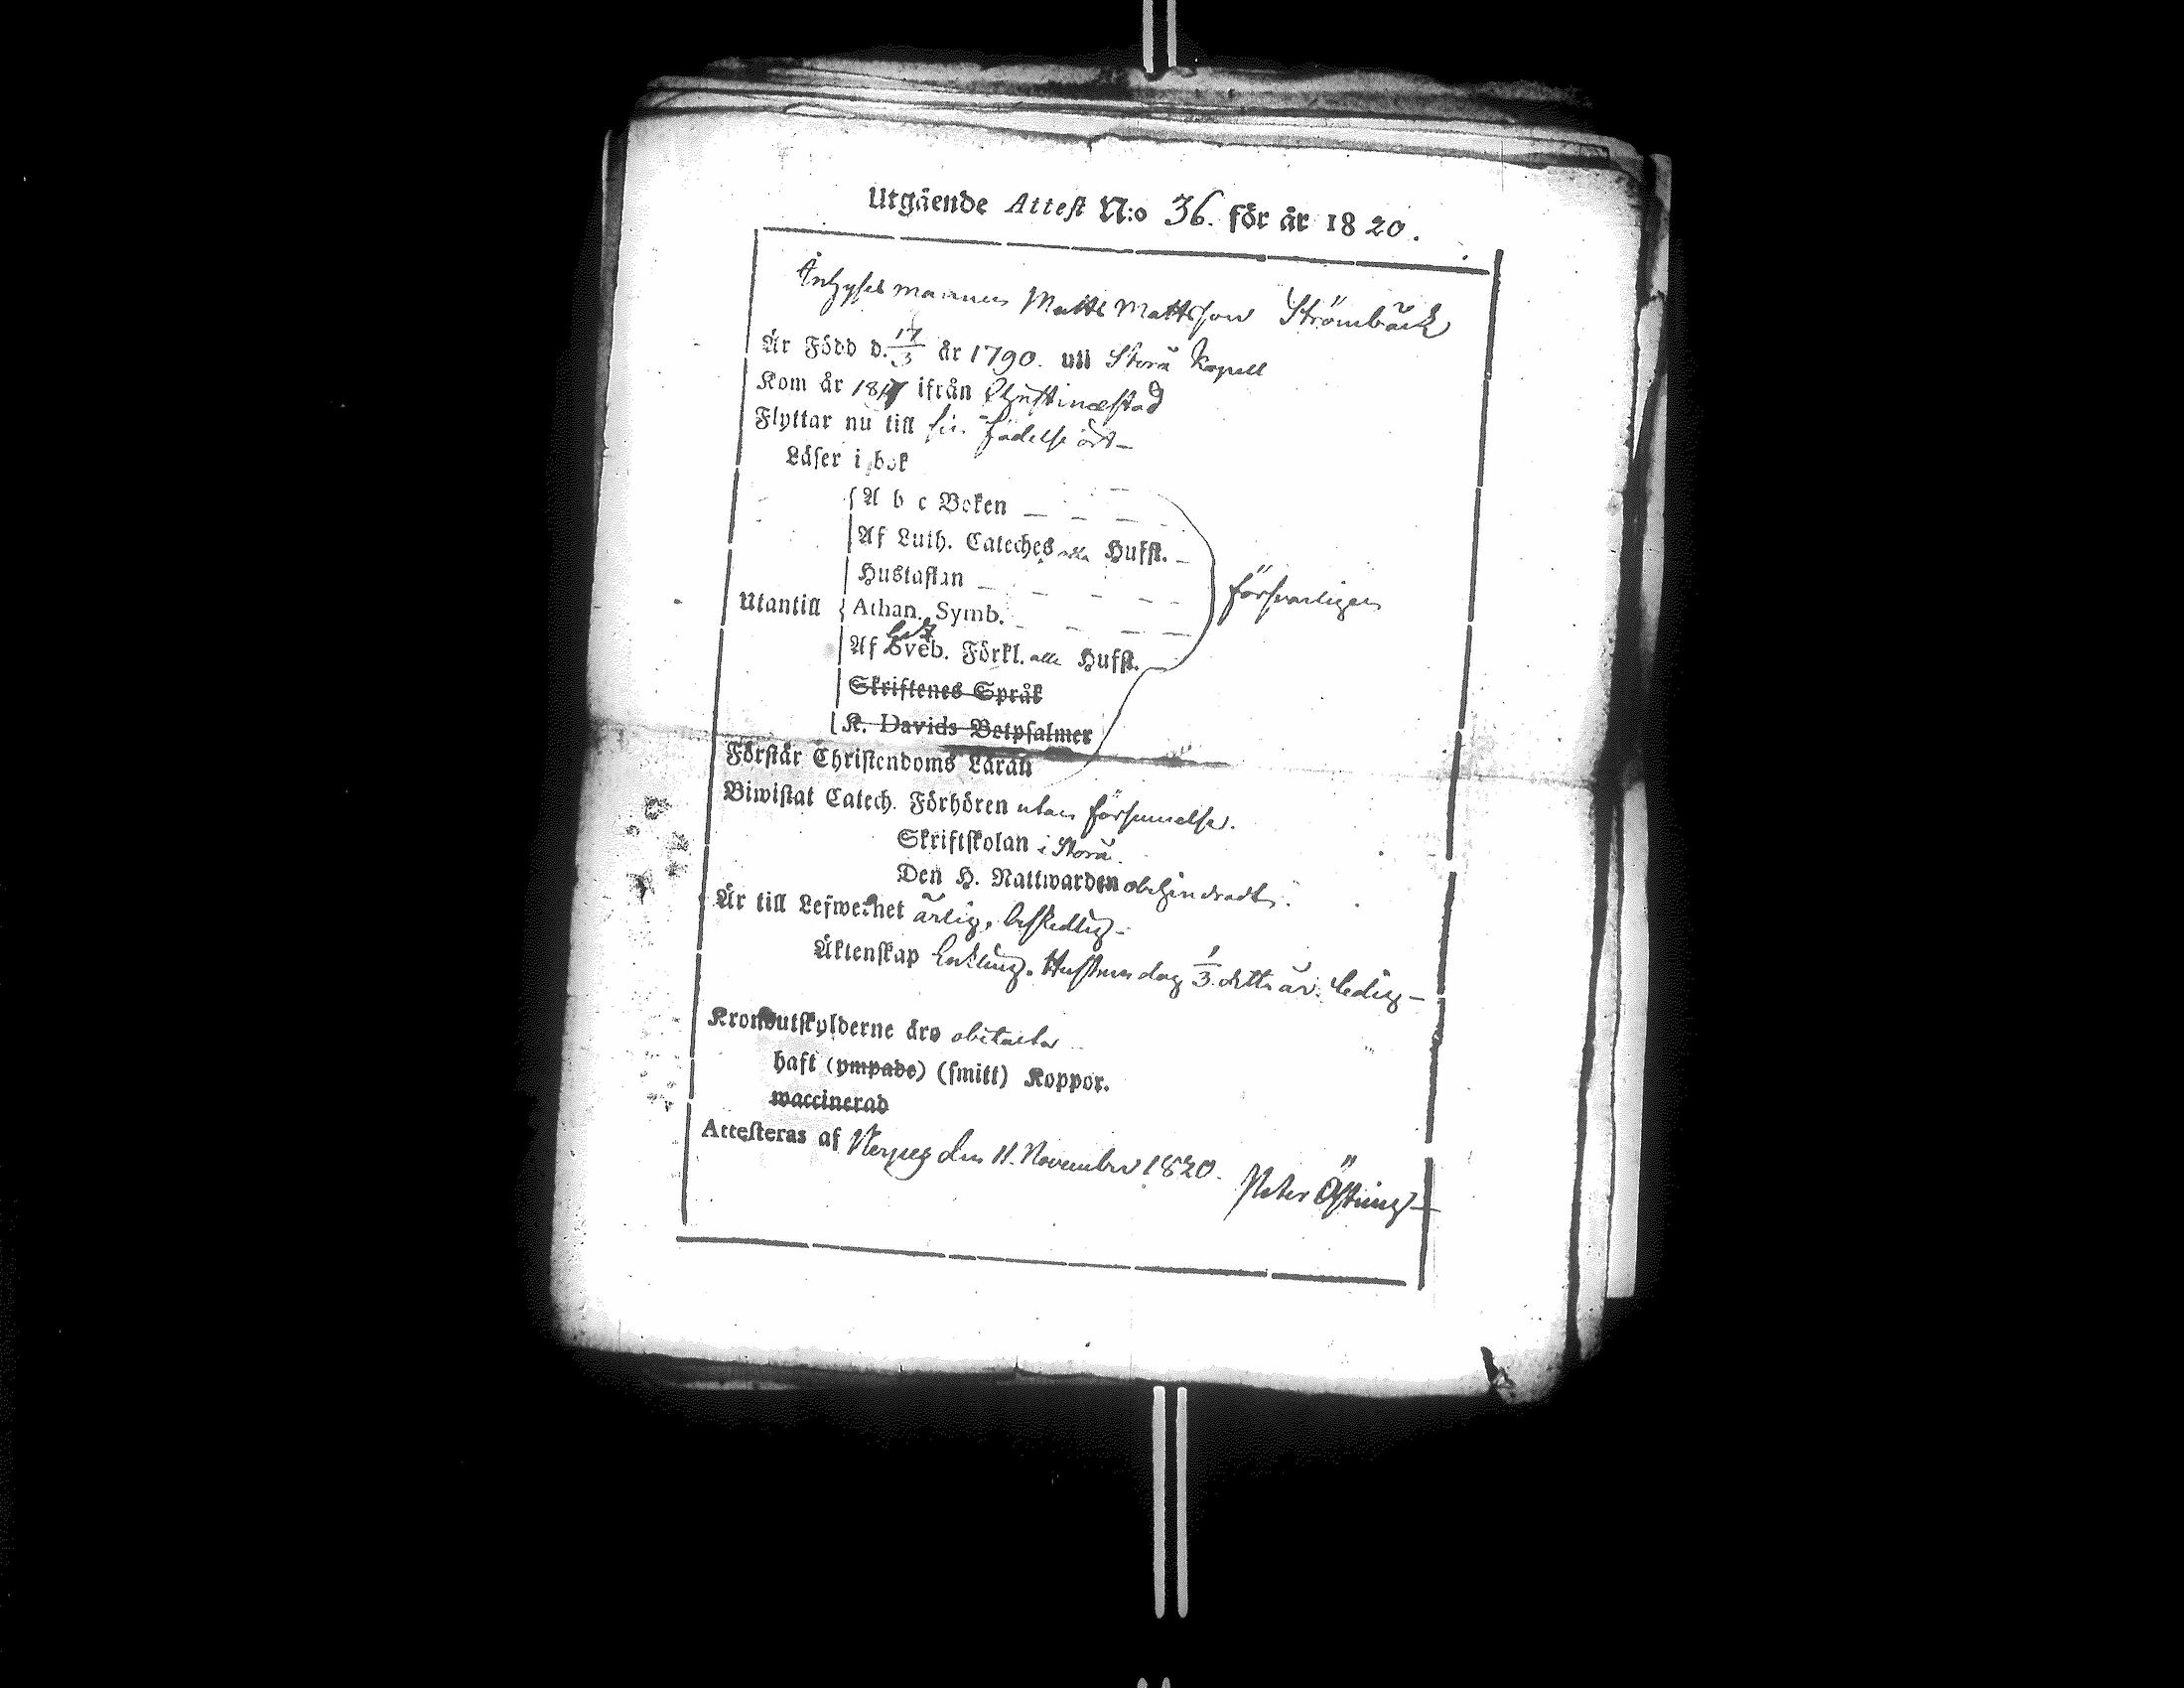 Utgående Attest N:o 36. för år 1820.
Inhyses mannen Matts Mattsson Strömbäck
Är Född d. 17/3 år 1790. uti Storå Kapell
Kom år 1817 ifrån Christinæstad
Flyttar nu till sin födelse ort
Läser i bok
A b c Boken
Af Luth. Cateches alla Hufst.
Hustaflan
Utantill Athan. Symb. försvarligen
Af Sveb. Förkl. alla Hufst.
Skriftenes Språk
K. Davids Botpsalmer
Förstår Christendoms Läran
Biwistat Catech. Förhören utan försumelse.
Skriftskolan i Storå
Den H. Nattwarden obehindradt.
Är till Lefwernet ärlig, beskedlig
Äktenskap Enkling. Hustrun dog 1/3 detta år. ledig
Kronoutskylderne äro obetalta
haft (ympade) (smitt) Koppor.
waccinerad
Attesteras af Nerpes den 11. November 1820.
Peter Östring